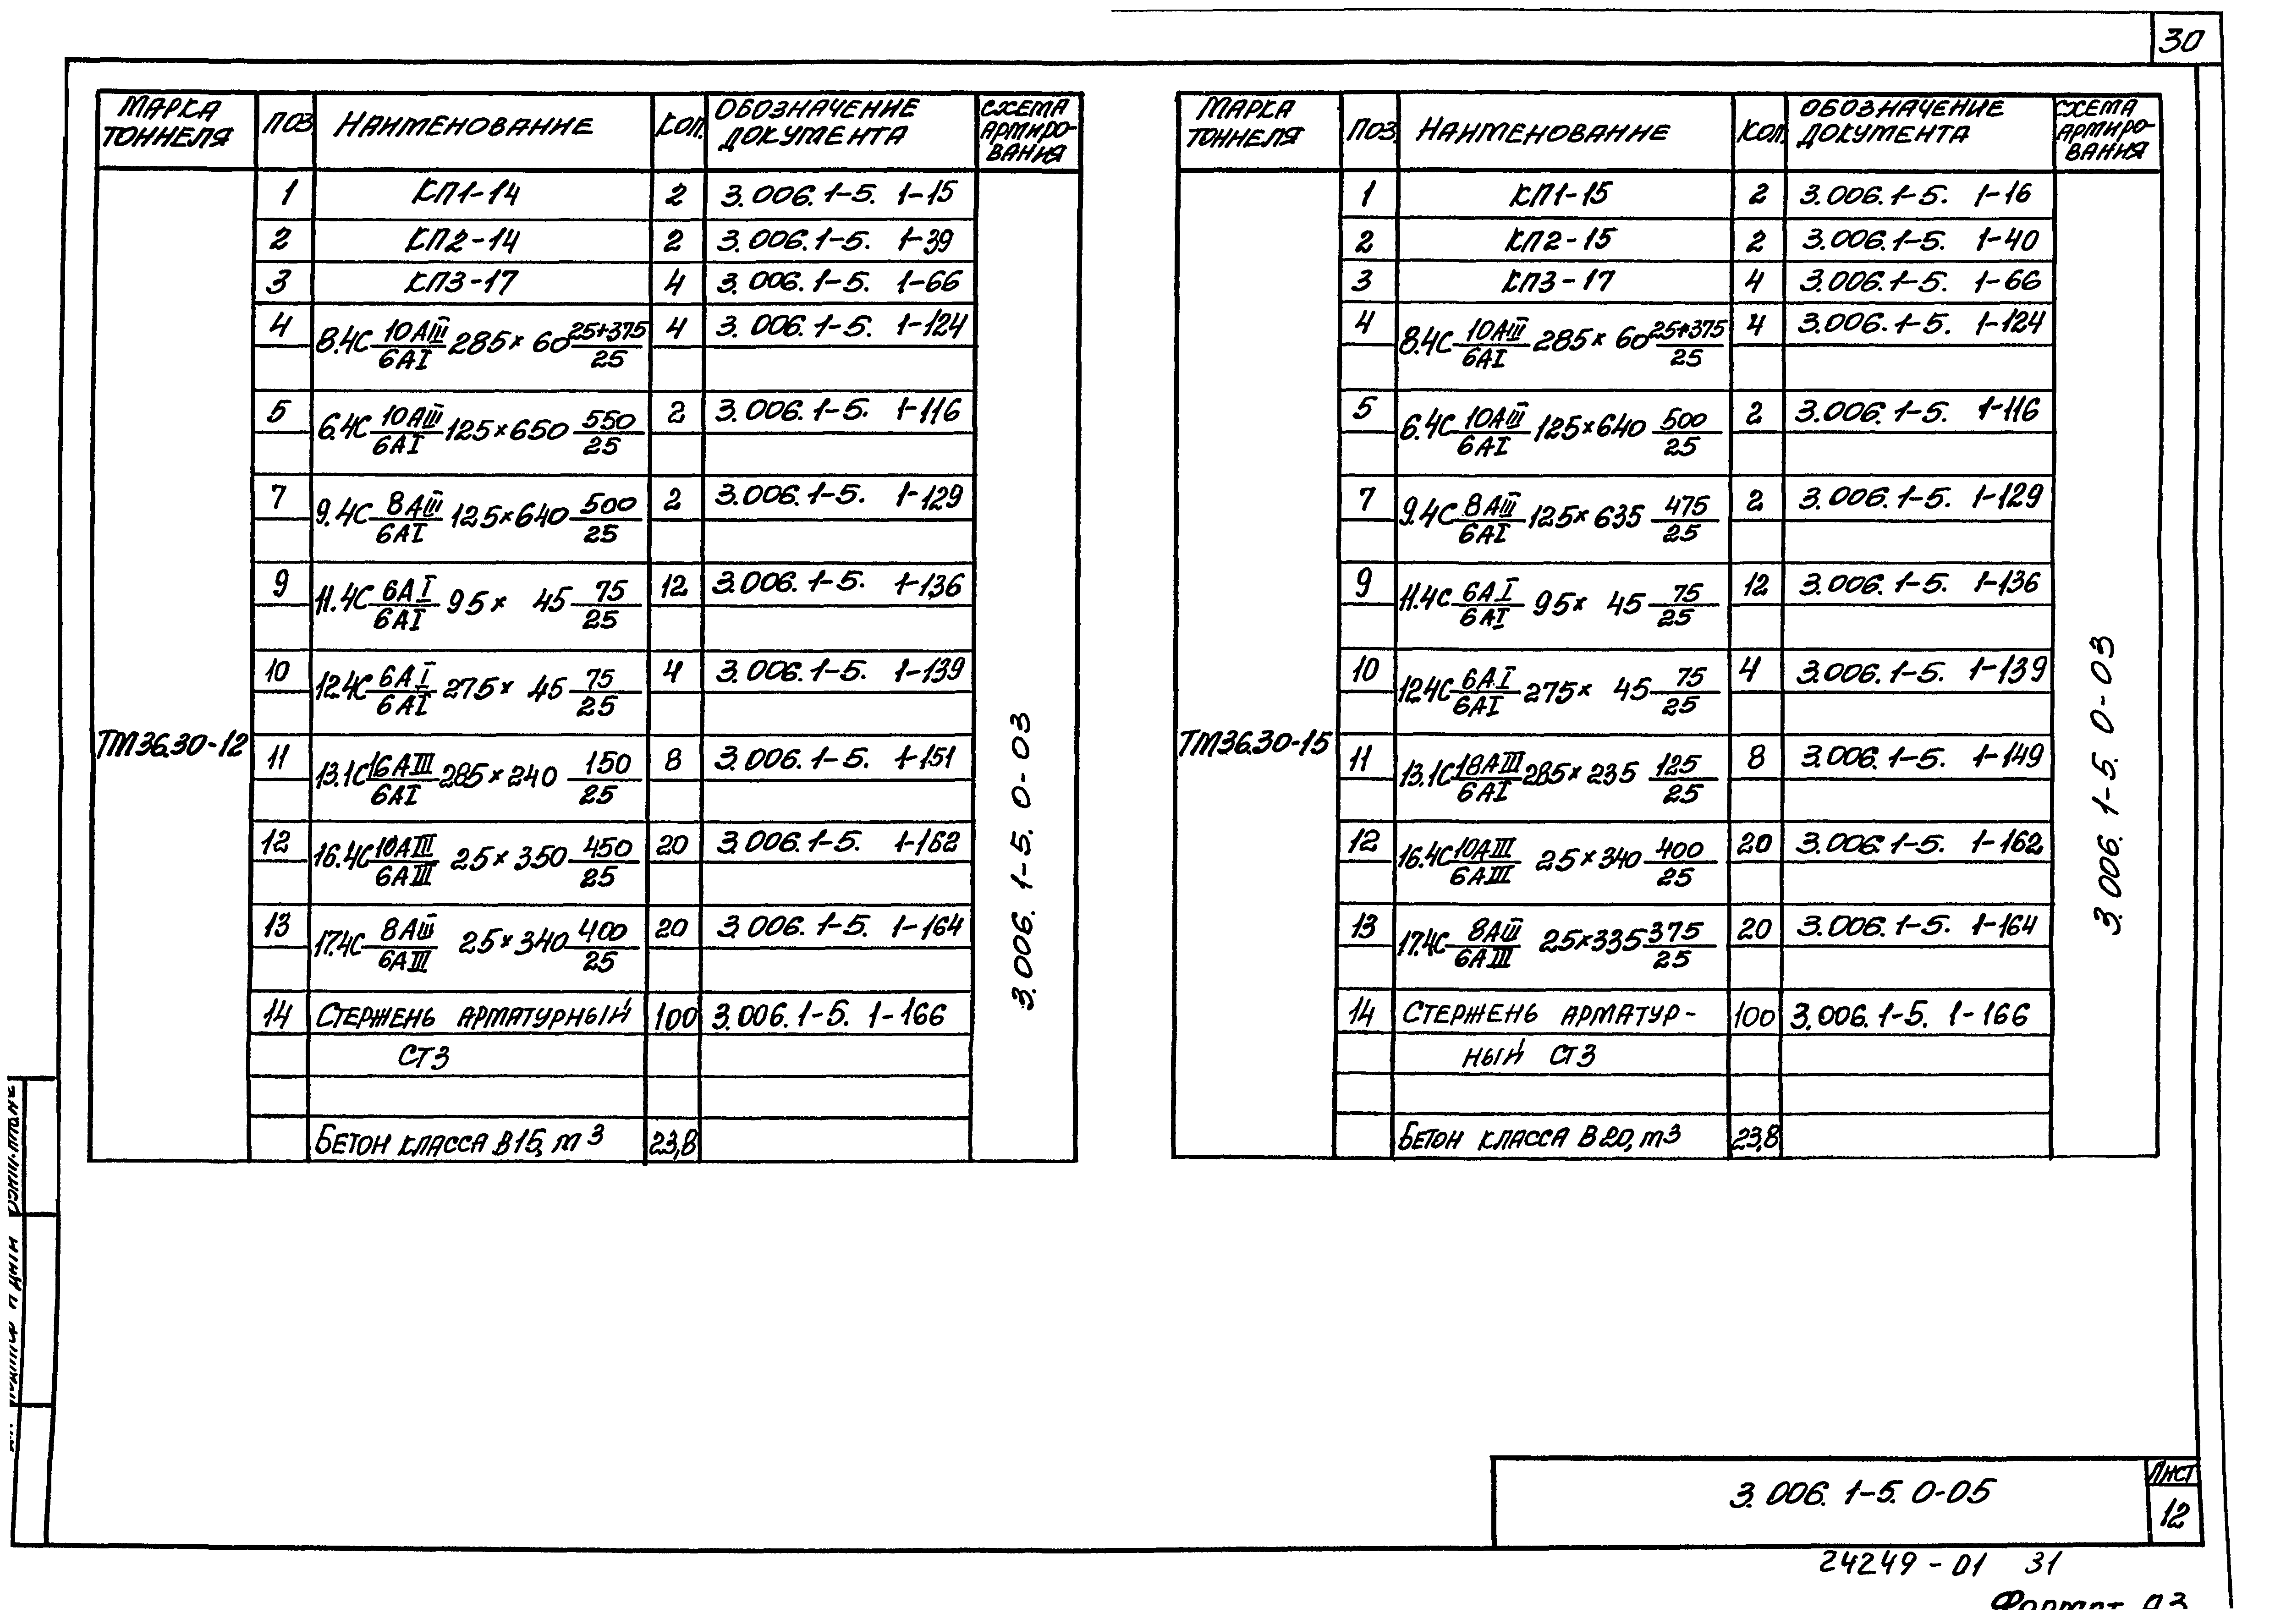 30
МАРКА ТОННЕЛЯ | ПОЗ. | НАИМЕНОВАНИЕ | КОЛ. | ОБОЗНАЧЕНИЕ ДОКУМЕНТА | СХЕМА АРМИРО-ВАНИЯ
ТМ36.30-12
1 | КП1-14 | 2 | 3.006.1-5. 1-15
2 | КП2-14 | 2 | 3.006.1-5. 1-39
3 | КП3-17 | 4 | 3.006.1-5. 1-66
4 | 8.4С 10АIII/6АI 285×60 25+375/25 | 4 | 3.006.1-5. 1-124
5 | 6.4С 10АIII/6АI 125×650 550/25 | 2 | 3.006.1-5. 1-116
7 | 9.4С 8АIII/6АI 125×640 500/25 | 2 | 3.006.1-5. 1-129
9 | 11.4С 6АI/6АI 95× 45 75/25 | 12 | 3.006.1-5. 1-136
10 | 12.4С 6АI/6АI 275× 45 75/25 | 4 | 3.006.1-5. 1-139
11 | 13.1С 16АIII/6АI 285×240 150/25 | 8 | 3.006.1-5. 1-151
12 | 16.4С 10АIII/6АIII 25×350 450/25 | 20 | 3.006.1-5. 1-162
13 | 17.4С 8АIII/6АIII 25×340 400/25 | 20 | 3.006.1-5. 1-164
14 | СТЕРЖЕНЬ АРМАТУРНЫЙ | 100 | 3.006.1-5. 1-166
СТ3
БЕТОН КЛАССА В15, м3 | 23,8
3.006.1-5.0-03
МАРКА ТОННЕЛЯ | ПОЗ. | НАИМЕНОВАНИЕ | КОЛ. | ОБОЗНАЧЕНИЕ ДОКУМЕНТА | СХЕМА АРМИРО-ВАНИЯ
ТМ36.30-15
1 | КП1-15 | 2 | 3.006.1-5. 1-16
2 | КП2-15 | 2 | 3.006.1-5. 1-40
3 | КП3-17 | 4 | 3.006.1-5. 1-66
4 | 8.4С 10АIII/6АI 285×60 25+375/25 | 4 | 3.006.1-5. 1-124
5 | 6.4С 10АIII/6АI 125×640 500/25 | 2 | 3.006.1-5. 1-116
7 | 9.4С 8АIII/6АI 125×635 475/25 | 2 | 3.006.1-5. 1-129
9 | 11.4С 6АI/6АI 95× 45 75/25 | 12 | 3.006.1-5. 1-136
10 | 12.4С 6АI/6АI 275× 45 75/25 | 4 | 3.006.1-5. 1-139
11 | 13.1С 18АIII/6АI 285×235 125/25 | 8 | 3.006.1-5. 1-149
12 | 16.4С 10АIII/6АIII 25×340 400/25 | 20 | 3.006.1-5. 1-162
13 | 17.4С 8АIII/6АIII 25×335 375/25 | 20 | 3.006.1-5. 1-164
14 | СТЕРЖЕНЬ АРМАТУР- | 100 | 3.006.1-5. 1-166
НЫЙ СТ3
БЕТОН КЛАССА В20, м3 | 23,8
3.006.1-5.0-03
3.006.1-5.0-05
ЛИСТ
12
24249-01 31
Формат А3